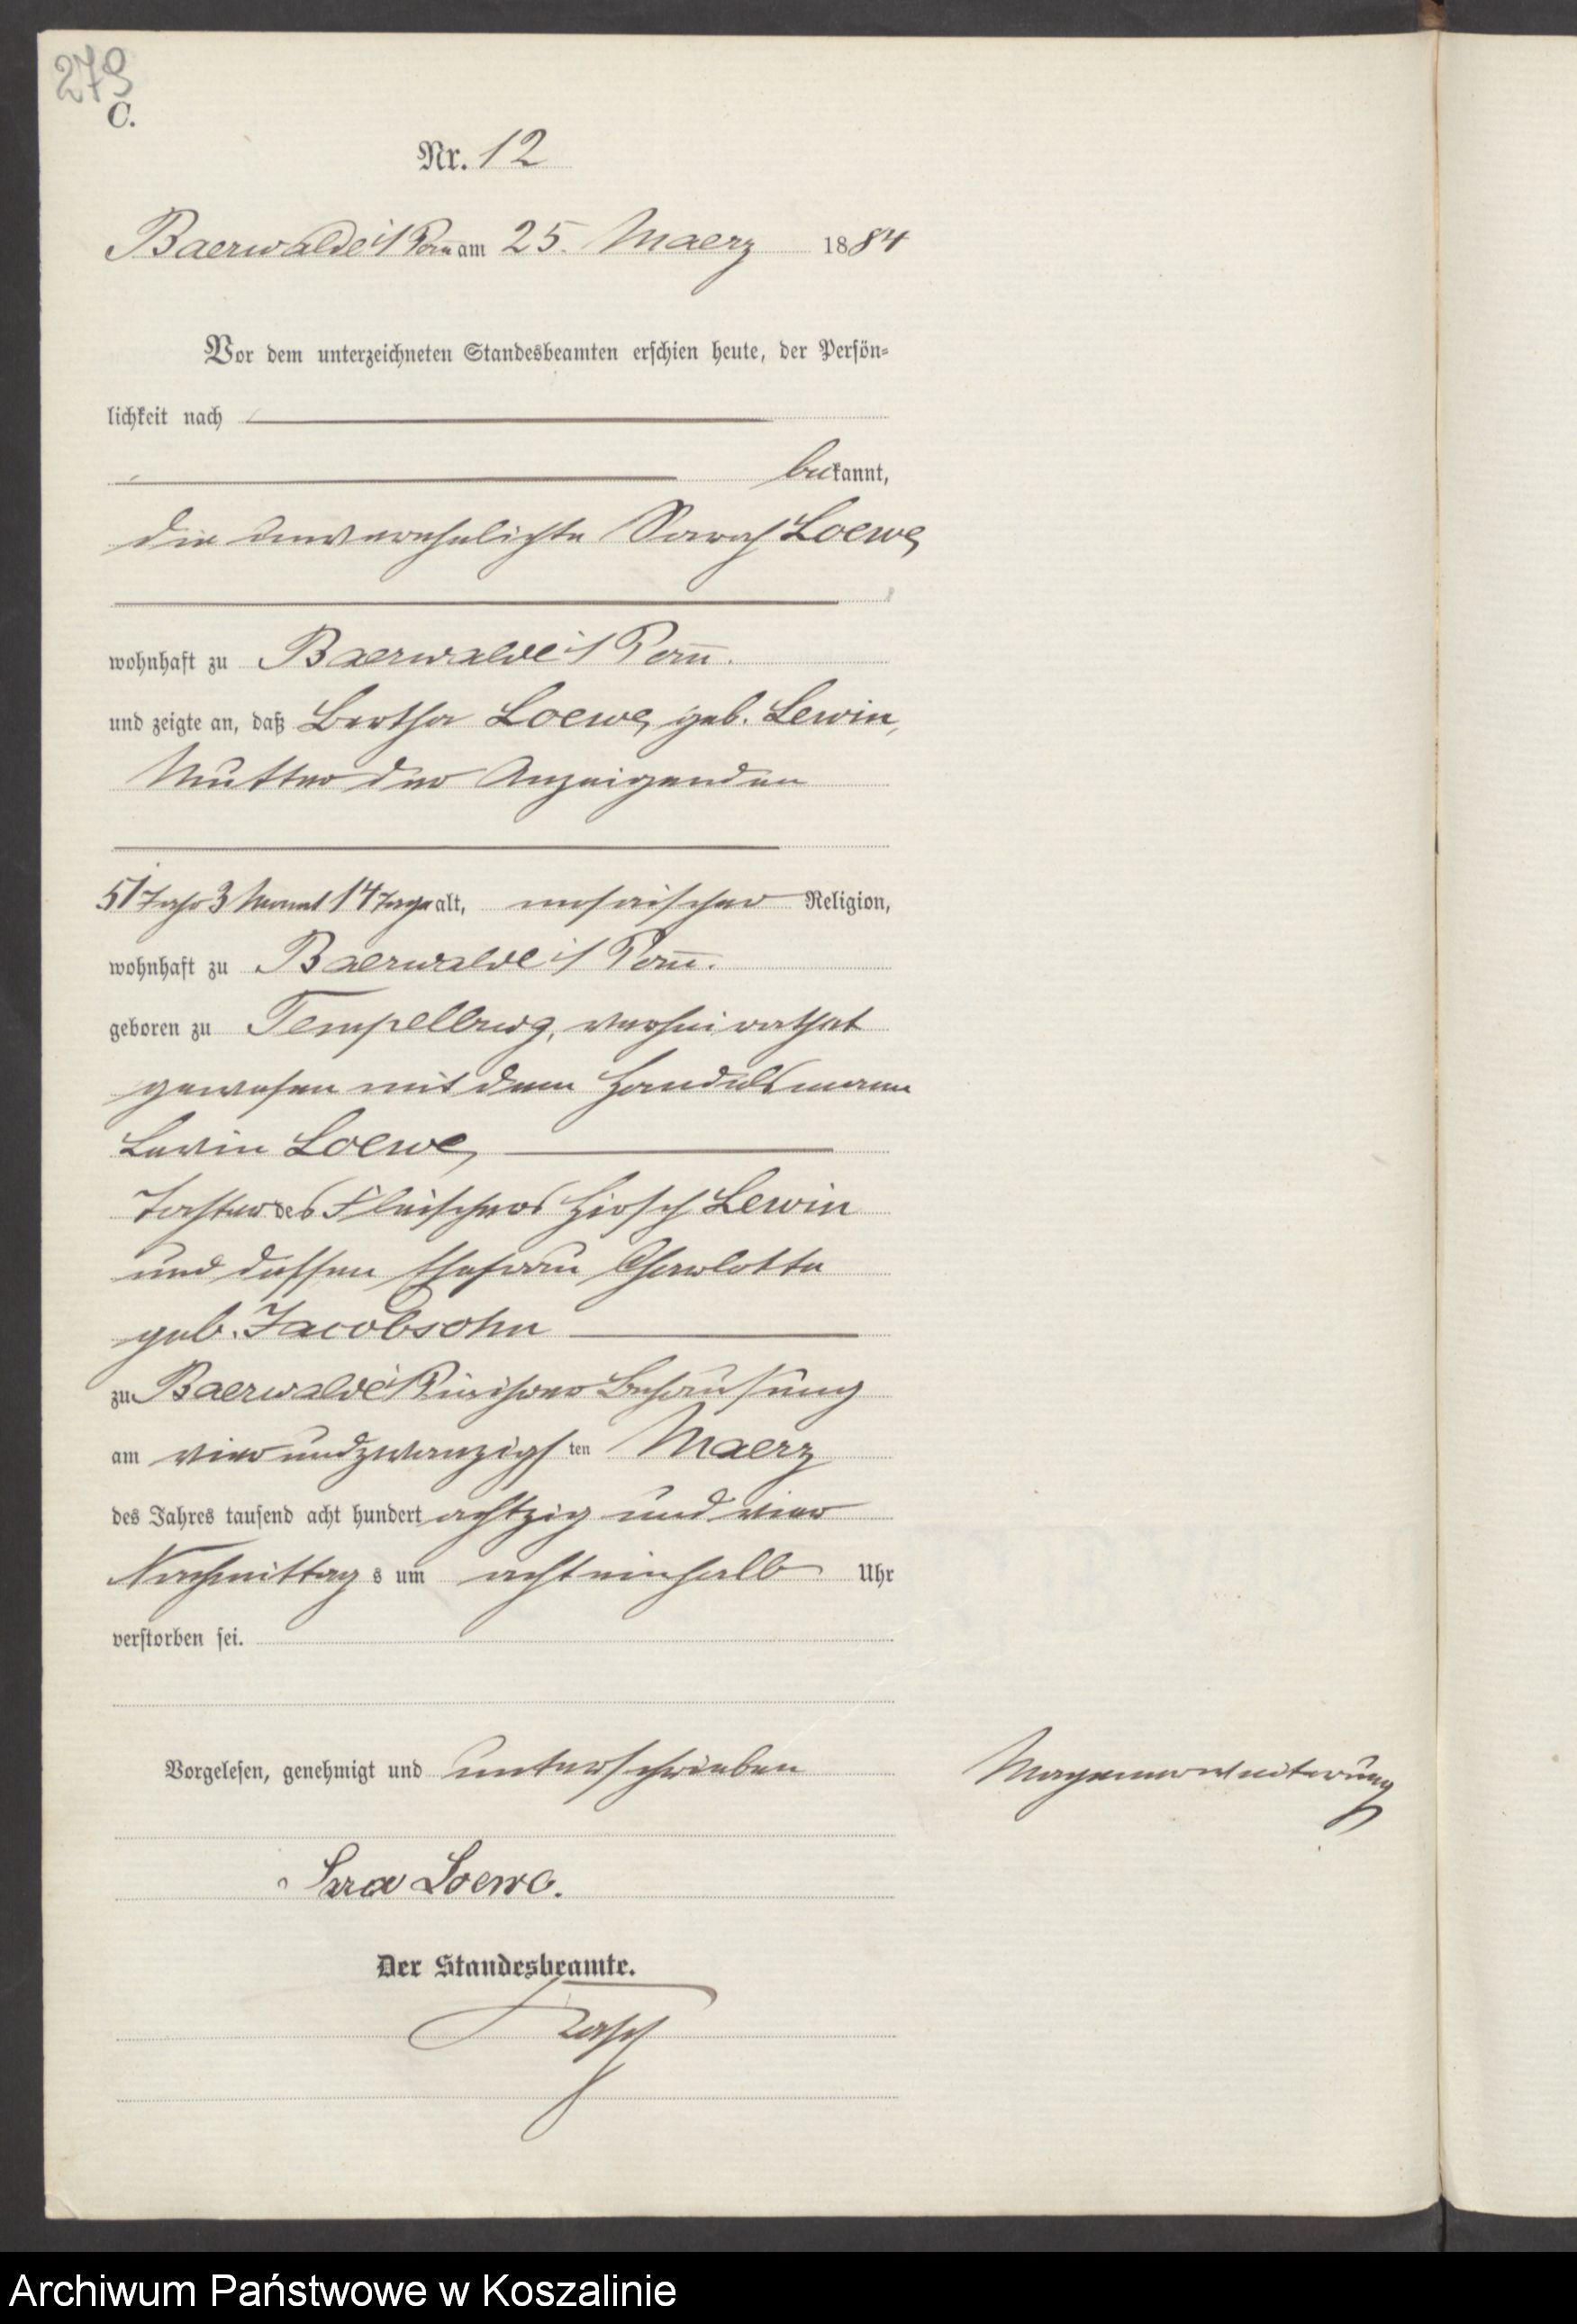 279
C.
Nr. 12
Baerwalde i/ Pom am 25. Maerz 1884
Vor dem unterzeichneten Standesbeamten erschien heute, der Persön-
lichkeit nach
bekannt,
die unverehelichte Sarah Loewe,
wohnhaft zu Baerwalde i/ Pom.
und zeigte an, daß Bertha Loewe, geb. Lewin,
Mutter der Anzeigenden
51 Jahr 3 Monat 14 Tage alt, mosaischer Religion,
wohnhaft zu Baerwalde i/ Pom.
geboren zu Tempelburg, verheirathet
gewesen mit dem Handelsmann
Lewin Loewe,
Tochter des Fleischers Hirsch Lewin
und dessen Ehefrau Charlotte
geb. Jacobsohn
zu Baerwalde i/P in ihrer Behausung
am vierundzwanzigsten Maerz
des Jahres tausend acht hundert achtzig und vier
Nachmittags um achteinhalb Uhr
verstorben sei.
Vorgelesen, genehmigt und unterschrieben
Magenerweiterung
Sara Loewe.
Der Standesbeamte.
Archiwum Państwowe w Koszalinie